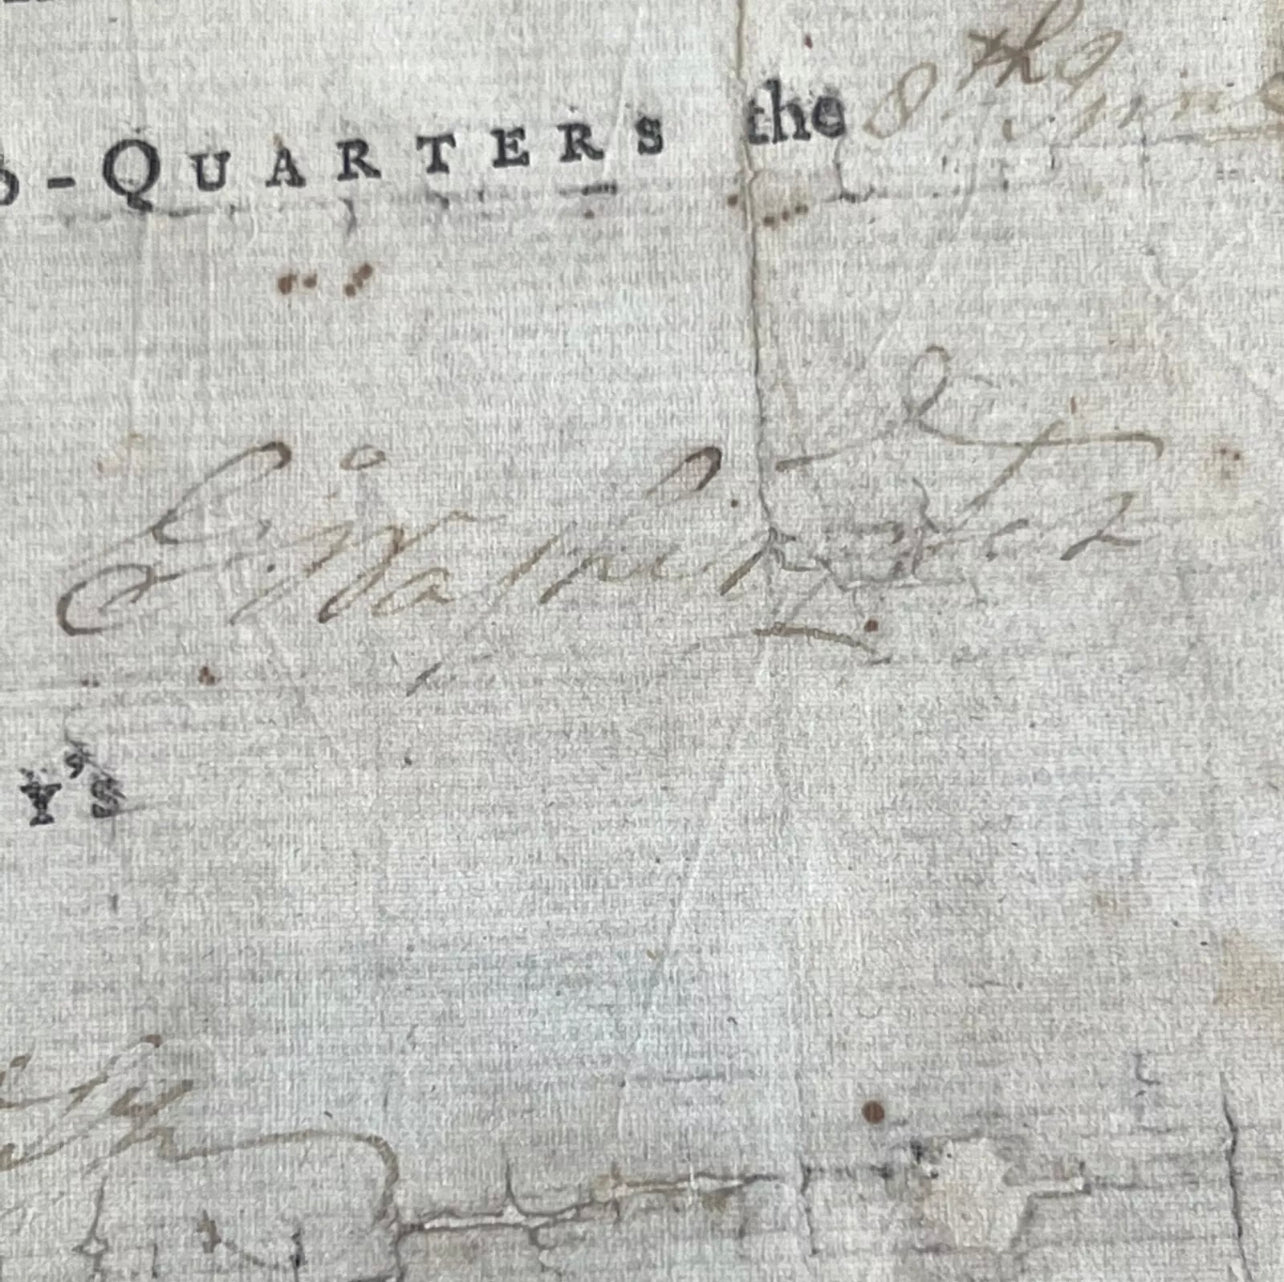 D-QUARTERS the 8th June
G:Washington
Y'S